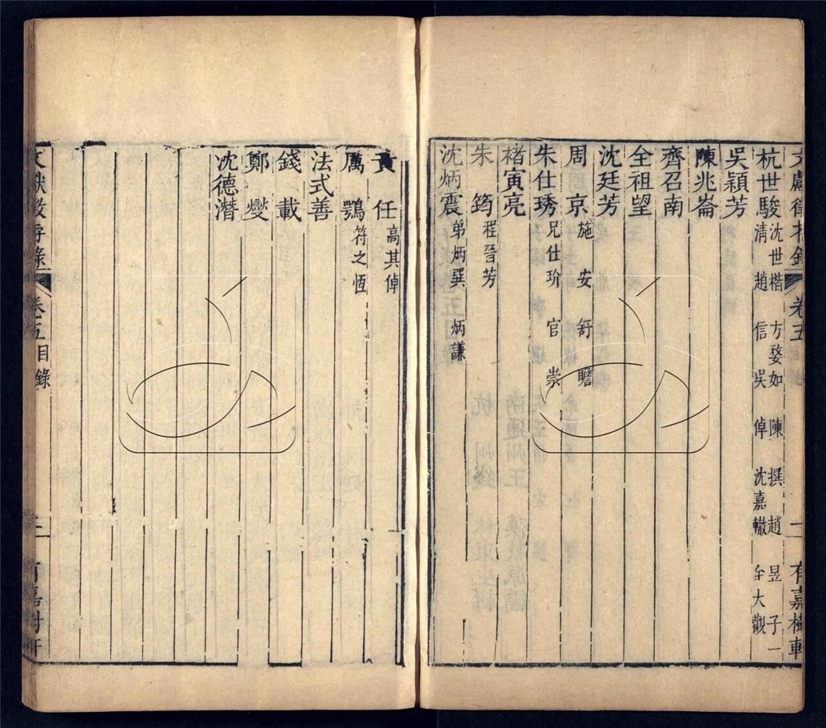 文獻徵存錄 卷五 一 有嘉樹軒
杭世駿 沈世楷 方婺如 陳撰 趙昱 子一
清 趙信 吳倬 沈嘉轍 大觀
吳穎芳
陳兆崙
齊召南
全祖望
沈廷芳
周京 施安 舒瞻
朱仕琇 兄仕玠 官崇
褚寅亮
朱筠 程晉芳
沈炳震 弟炳巽 炳謙
黃任 高其倬
厲鶚 符之恆
法式善
錢載
鄭燮
沈德潛
文獻徵存錄 卷五目錄 二 有嘉樹軒